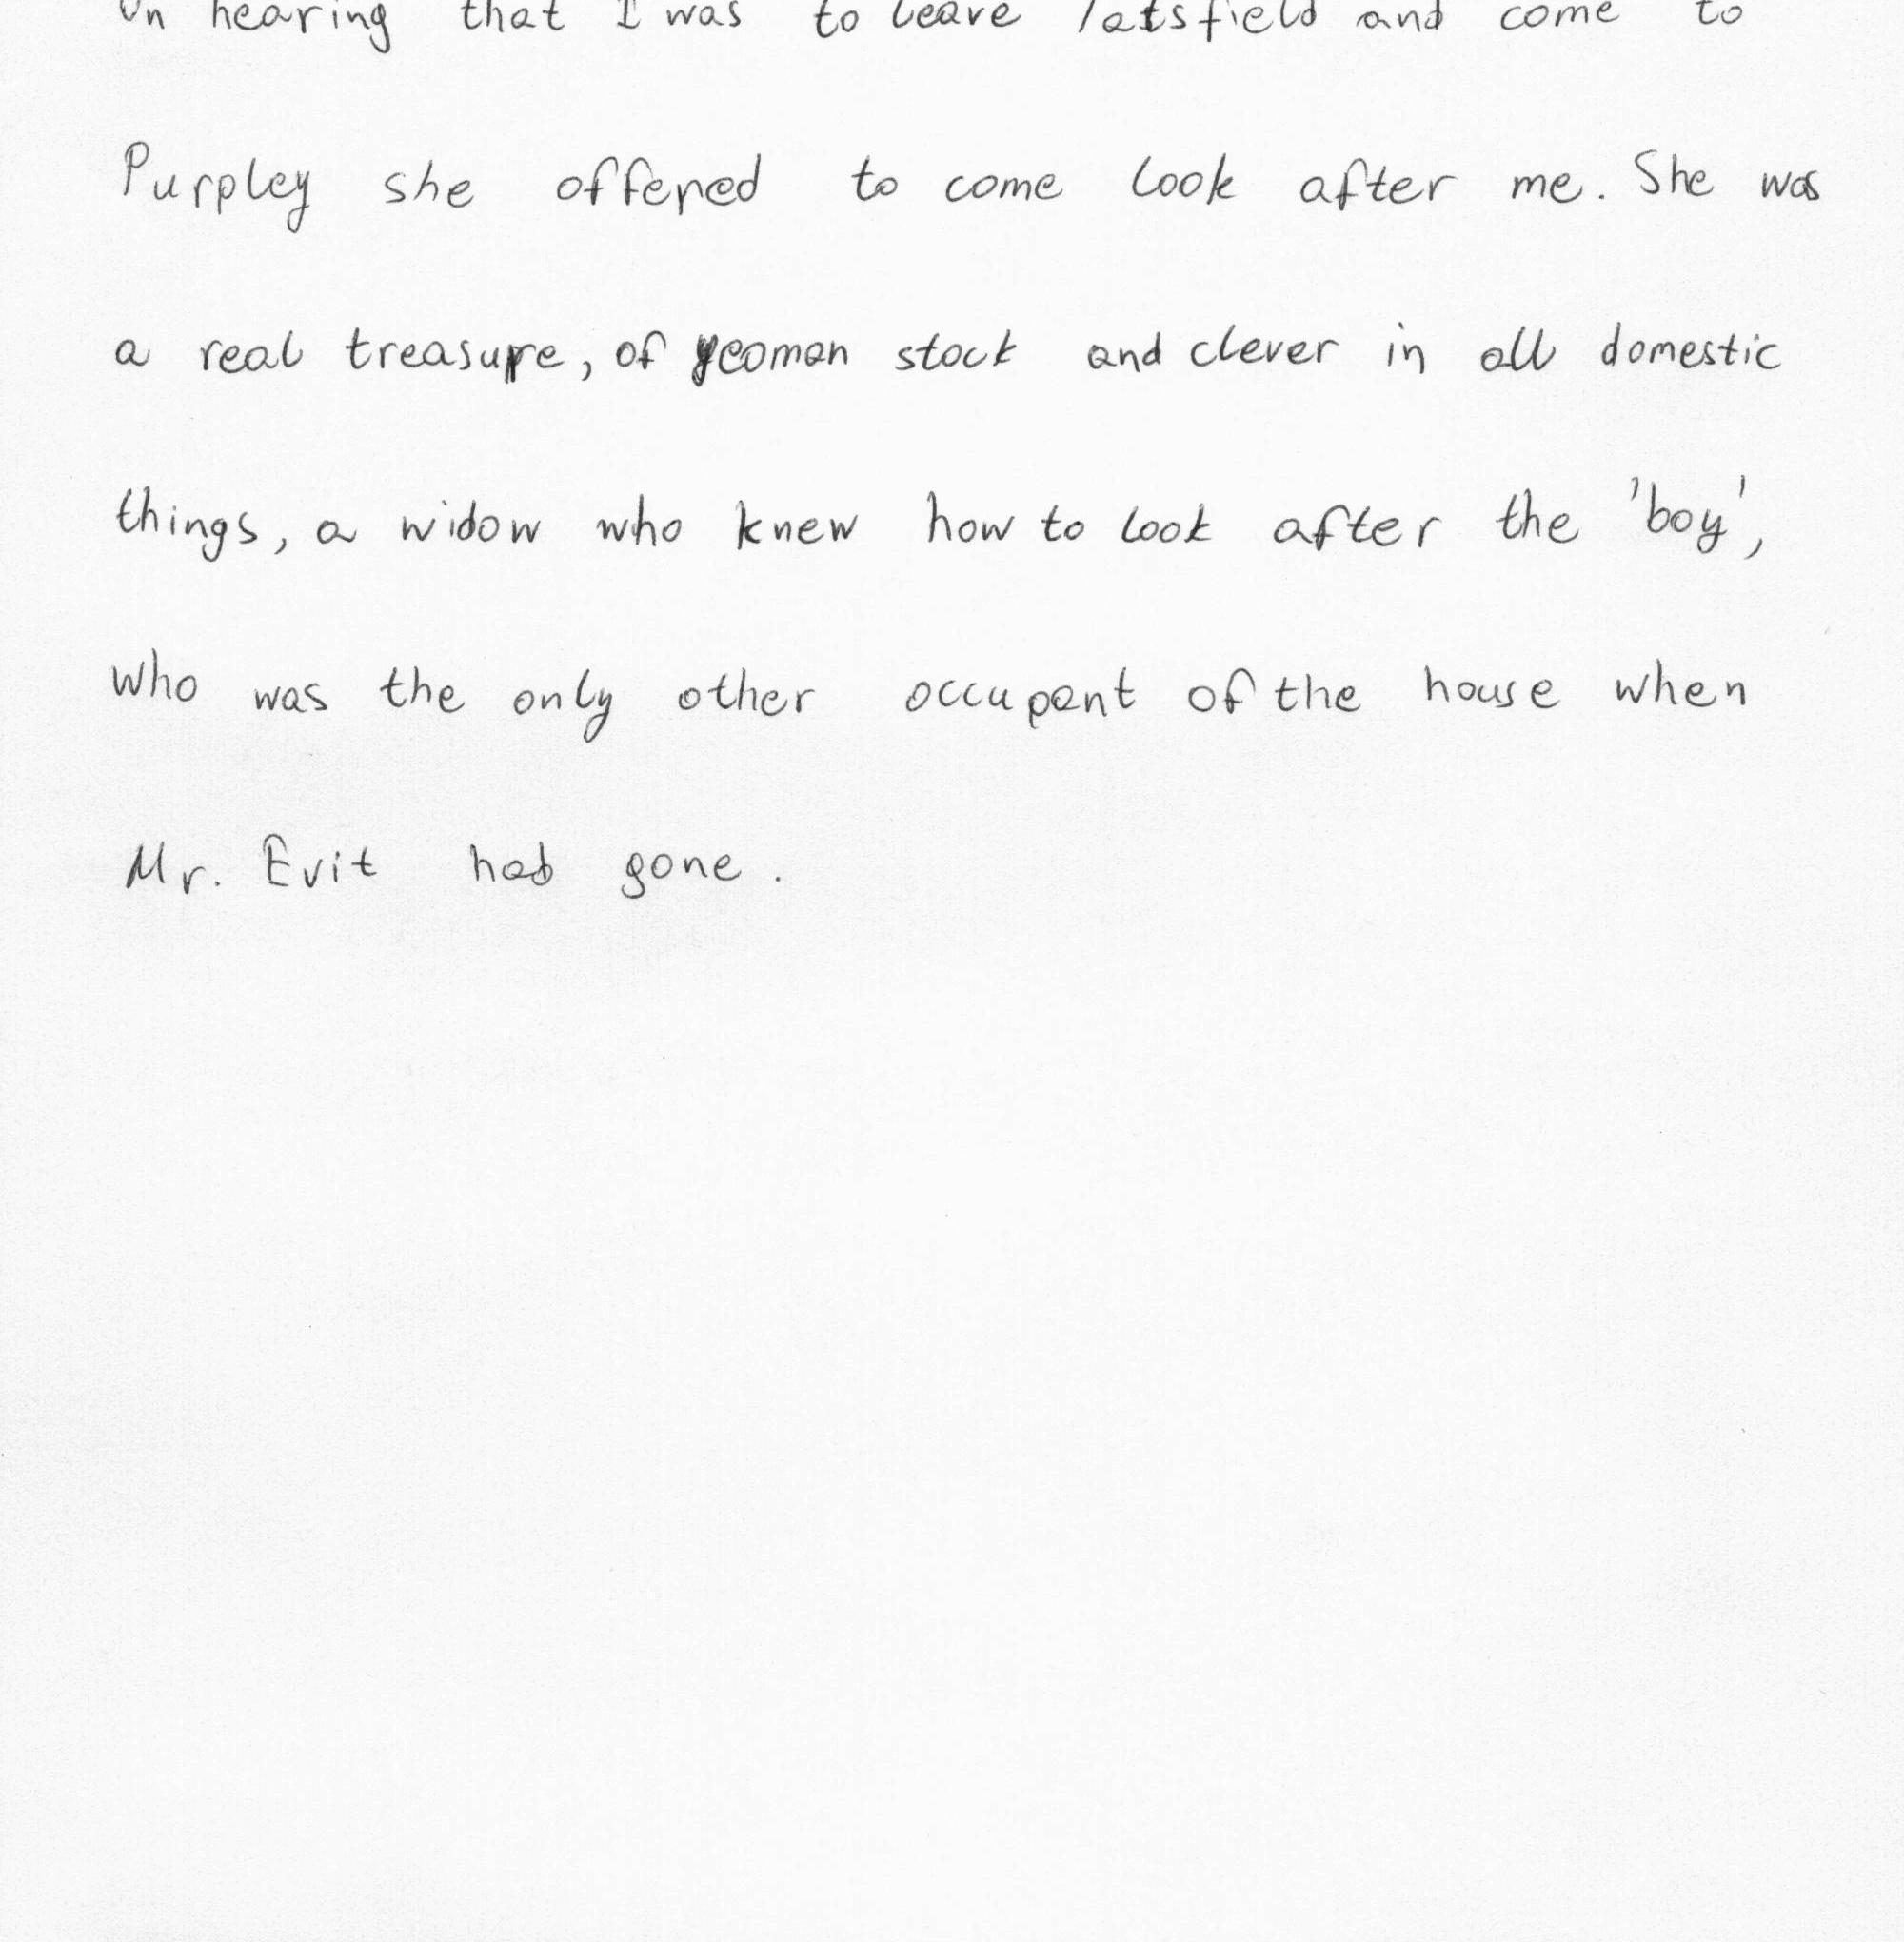 On hearing that I was to leave Tatsfield and come to
Purpley she offered to come look after me. She was
a real treasure, of yeoman stock and clever in all domestic
things, a widow who knew how to look after the 'boy',
who was the only other occupant of the house when
Mr. Evit had gone.